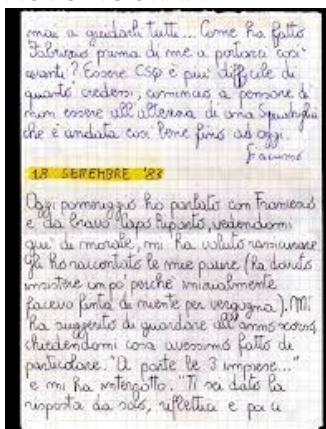 mai a guidarli tutti... Come ha fatto
Fabrizio prima di me a portarci così
avanti? Essere CSQ è più difficile di
quanto credessi, comincio a pensare di
non essere all'altezza di una Squadriglia
che è andata così bene fino ad oggi.
18 SETTEMBRE '83
Oggi pomeriggio ho parlato con Francesco
e da bravo Capo Reparto, vedendomi
giù di morale, mi ha voluto rassicurare
Gli ho raccontato le mie paure (ha dovuto
insistere un po' perché inizialmente
facevo finta di niente per vergogna). Mi
ha suggerito di guardare all'anno scorso,
chiedendomi cosa avessimo fatto di
particolare. "A parte le 3 imprese..."
e mi ha interrotto. "Ti sei dato la
risposta da solo, rifletteci e poi